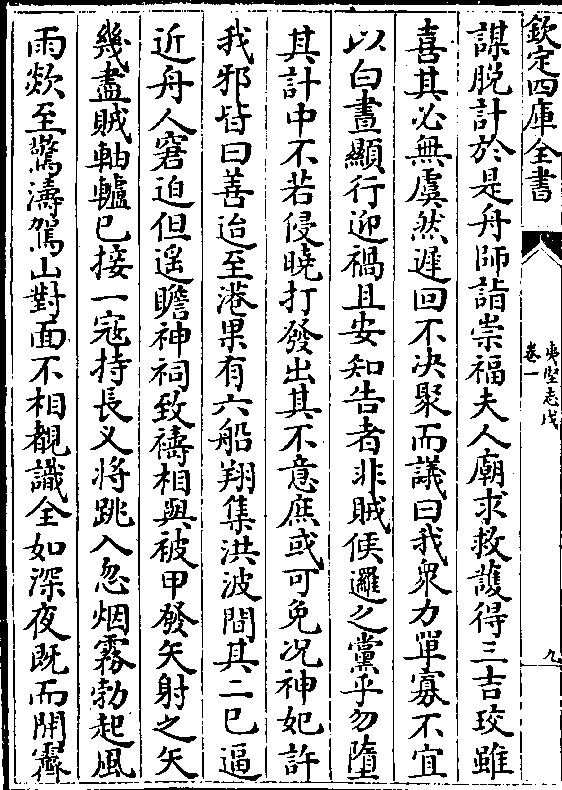 欽定四庫全書
夷堅志戊
卷一
九
謀脫計於是舟師詣崇福夫人廟求救䕶得三吉珓雖
喜其必無虞然遲回不决聚而議曰我衆力單寡不宜
以白晝顯行迎禍且安知告者非賊便邏之黨乎勿墮
其計中不若侵曉打發出其不意庶或可免况神妃許
我邪皆曰善迨至港果有六船翔集洪波間其二已逼
近舟人窘迫但遥瞻神祠致禱相與被甲發矢射之矢
幾盡賊軸轤已接一冦持長乂將跳入忽烟霧勃起風
雨欻至驚濤駕山對面不相覩識全如深夜既而開霽